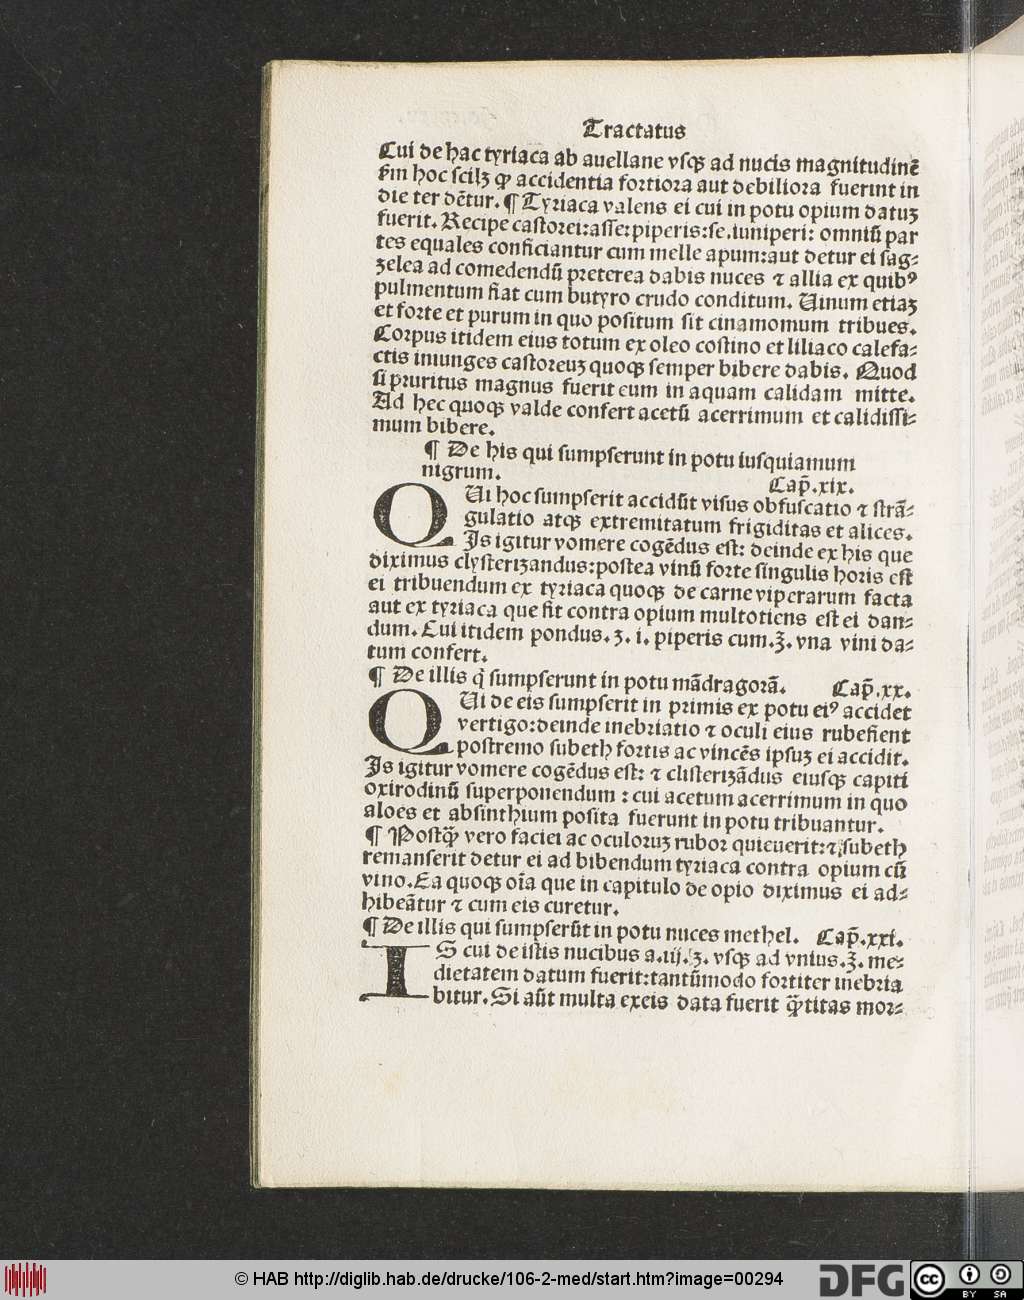 Tractatus
Cui de hac tyriaca ab auellane vsqꝫ ad nucis magnitudinē
ẜm hoc scilꝫ ꝙ accidentia fortiora aut debiliora fuerint in
die ter dētur. ¶ Tyriaca valens ei cui in potu opium datuꝫ
fuerit. Recipe castorei: asse: piperis: se. iuniperi: omniū par
tes equales conficiantur cum melle apum: aut detur ei sag⸗
zelea ad comedendū preterea dabis nuces ⁊ allia ex quibꝰ
pulmentum fiat cum butyro crudo conditum. Uinum etiaꝫ
et forte et purum in quo positum sit cinamomum tribues.
Corpus itidem eius totum ex oleo costino et liliaco calefa⸗
ctis iniunges castoreuꝫ quoqꝫ semper bibere dabis. Quod
si pruritus magnus fuerit eum in aquam calidam mitte.
Ad hec quoqꝫ valde confert acetū acerrimum et calidissi⸗
mum bibere.
¶ De his qui sumpserunt in potu iusquiamum
nigrum. Cap̄. xix.
QUi hoc sumpserit accidūt visus obfuscatio ⁊ strā⸗
gulatio atqꝫ extremitatum frigiditas et alices.
Is igitur vomere cogēdus est: deinde ex his que
diximus clysterizandus: postea vinū forte singulis horis est
ei tribuendum ex tyriaca quoqꝫ de carne viperarum facta
aut ex tyriaca que fit contra opium multotiens est ei dan⸗
dum. Cui itidem pondus. ʒ. i. piperis cum. ℥. vna vini da⸗
tum confert.
¶ De illis q̇ sumpserunt in potu mādragorā. Cap̄. xx.
QUi de eis sumpserit in primis ex potu eiꝰ accidet
vertigo: deinde inebriatio ⁊ oculi eius rubefient
postremo subeth fortis ac vincēs ipsuꝫ ei accidit.
Is igitur vomere cogēdus est: ⁊ clisterizādus eiusqꝫ capiti
oxirodinū superponendum: cui acetum acerrimum in quo
aloes et absinthium posita fuerunt in potu tribuantur.
¶ Postꝙ̄ vero faciei ac oculoruꝫ rubor quieuerit: ⁊ subeth
remanserit detur ei ad bibendum tyriaca contra opium cū
vino. Ea quoqꝫ oīa que in capitulo de opio diximus ei ad⸗
hibeātur ⁊ cum eis curetur.
¶ De illis qui sumpserūt in potu nuces methel. Cap̄. xxi.
IS cui de istis nucibus a. iij. ʒ. vsqꝫ ad vnius. ℥. me⸗
dietatem datum fuerit: tantūmodo fortiter inebria
bitur. Si aūt multa ex eis data fuerit ꝙ̄titas mor⸗
© HAB http://diglib.hab.de/drucke/106-2-med/start.htm?image=00294
DFG
cc
BY SA